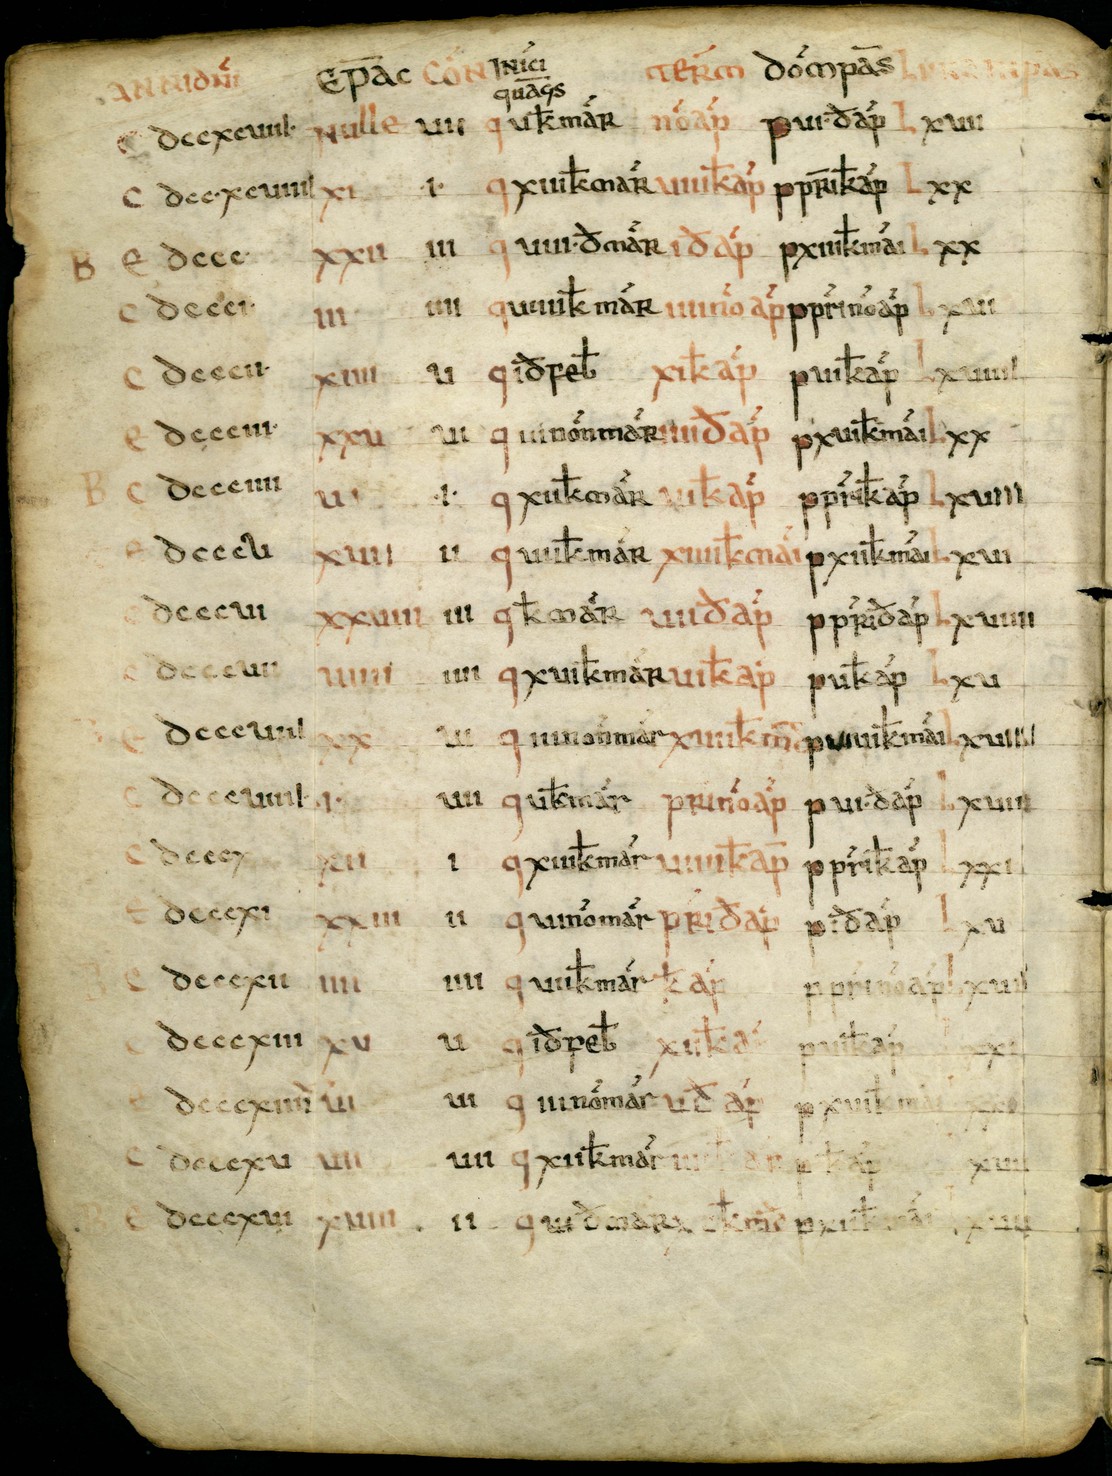 ANNI DNI EPAC CON INICI QUAGS TERM DOMPAS L PAS
C dccxcuiii nulle uii q uk mar no ap p ui d ap L xuii
C dcc xcuiiii xi i q xiiik mar uiiik ap p prik ap L xx
B C dccc xxii iii q uiii d mar id ap p xiiik mai L xx
C dccci iii iiii q uiiiik mar iiii no ap p pri no ap L xuii
C dcccii xiiii u q id feb xik ap p uik ap L xuiiii
C dccciii xxu ui q iii non mar iiii d ap p xuik mai L xx
B C dccciiii ui i q xiik mar uik ap p prik ap L xuiiii
C dcccu xuii ii q uiik mar xiiiik mai p xiik mai L xui
dcccui xxuiiii iii q k mar uii d ap p pri d ap L xuiiii
C dcccuii uiiii iiii q xuik mar uik ap p uk ap L xu
C dcccuiii xx ui q iii non mar xuiik p uiiiik mai L xuiiii
C dcccuiiii i uii q uk mar pri no ap p ui d ap L xuiii
C dcccx xii i q xiiik mar uiiiik ap p prik ap L xxi
C dcccxi xxiii ii q uii no mar pri d ap p id ap L xu
C dcccxii iiii iiii q uiik mar k ap p pri no ap L xuii
dcccxiii xu u q id feb xiik p uik ap
dcccxiiii ui q iii no mar u d ap p xuik
C dcccxu uii uii q xiik mar p k ap xuii
B C dcccxui xuiiii ii q ui d mar p xiik xuii